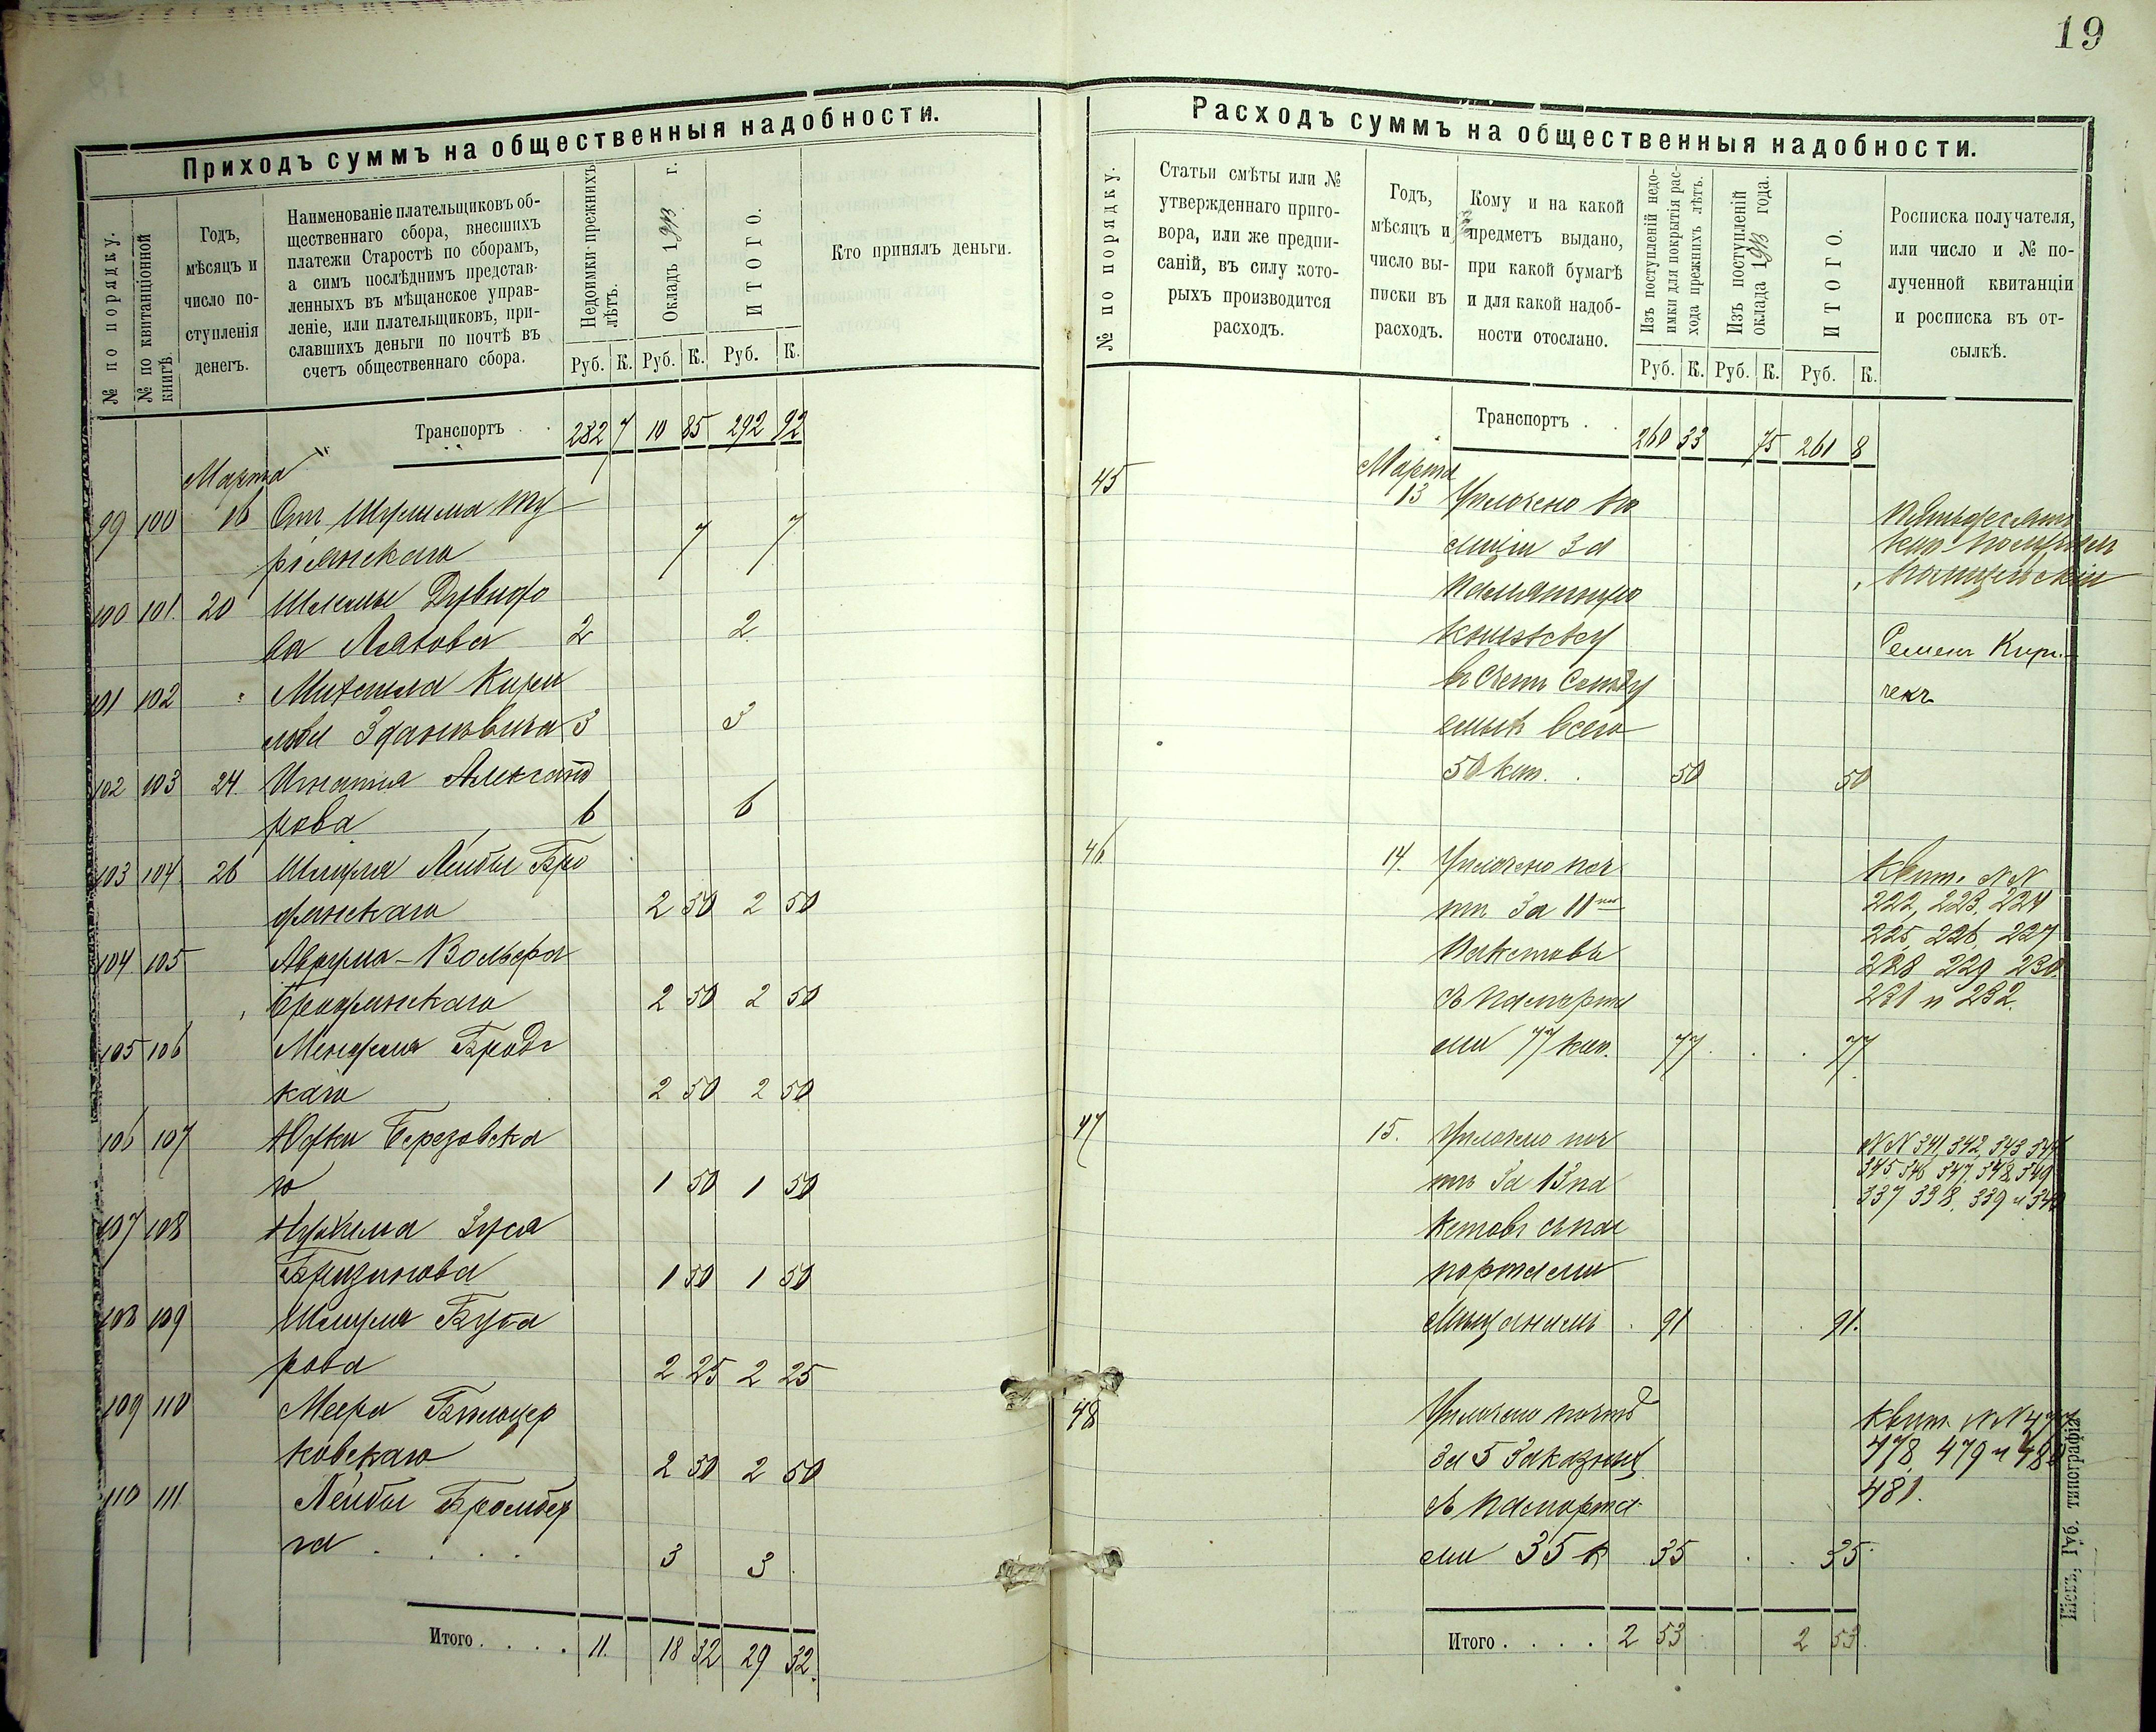 19
Приходъ суммъ на общественныя надобности.
№ по порядку.
№ по квитанціонной книгѣ.
Годъ,
мѣсяцъ и
число по-
ступленія
денегъ.
Наименованіе плательщиковъ об-
щественнаго сбора, внесшихъ
платежи Старостѣ по сборамъ,
а симъ послѣднимъ представ-
ленныхъ въ мѣщанское управ-
леніе, или плательщиковъ, при-
славшихъ деньги по почтѣ въ
счетъ общественнаго сбора.
Недоимки прежнихъ
лѣтъ.
Окладъ 1913 г.
ИТОГО.
Руб. К. Руб. К. Руб. К.
Кто принялъ деньги.
Транспортъ . . 282 7 10 85 292 92
Марта
99 100 16 Отъ Шулима
7 7
100 101. 20
ва 2 2
101 102 "
3 3
102 103 24. Игнатія Александ
рова 6 6
103 104 26 Шмуля Лейбы Бро
дянскаго 2 50 2 50
104 105 Аврума-Вольфа
Бродянскаго 2 50 2 50
105 106 Менделя Бродс
каго 2 50 2 50
106 107 Юдки Березовска
го 1 50 1 50
107 108 Нухима Зуся
1 50 1 50
108 109 Шмуля
рова 2 25 2 25
109 110 Меера Бѣлоцер
ковскаго 2 50 2 50
110 111 Лейбы Бромбер
га . . . . 3 3
Итого . . . . 11. 18 32 29 32.
Расходъ суммъ на общественныя надобности.
№ по порядку.
Статьи смѣты или №
утвержденнаго приго-
вора, или же предпи-
саній, въ силу кото-
рыхъ производится
расходъ.
Годъ,
мѣсяцъ и
число вы-
писки въ
расходъ.
Кому и на какой
предметъ выдано,
при какой бумагѣ
и для какой надоб-
ности отослано.
Изъ поступленій недо-
имки для покрытія рас-
хода прежнихъ лѣтъ.
Изъ поступленій
оклада 1913 года.
ИТОГО.
Руб. К. Руб. К. Руб. К.
Росписка получателя,
или число и № по-
лученной квитанціи
и росписка въ от-
сылкѣ.
Транспортъ . . 260 33 75 261 8
45 Марта
13 Уплочено
за
въ счетъ
всего
50 коп. . 50 50
Пятьдесятъ
коп получилъ
Семенъ
46 14. Уплочено поч
тѣ за 11
пакетовъ
съ паспорта
ми 77 коп. 77 . . . 77
Квит. NN
222, 223, 224
225, 226, 227
228 229 230.
231 и 232.
47 15. Уплочено поч
тѣ за 13 па
кетовъ съ пас
портами
мѣщанамъ . 91 . . 91.
NN 341, 342, 343 344
345 346 347, 348, 349
337 338, 339 и 340
48 Уплочено почтѣ
за 5 заказныхъ
съ паспорта-
ми 35 к 35 . . 35
Квит. NN 477
478, 479 и 480
481.
Итого . . . . 2 53 2 53.
Губ. типографія